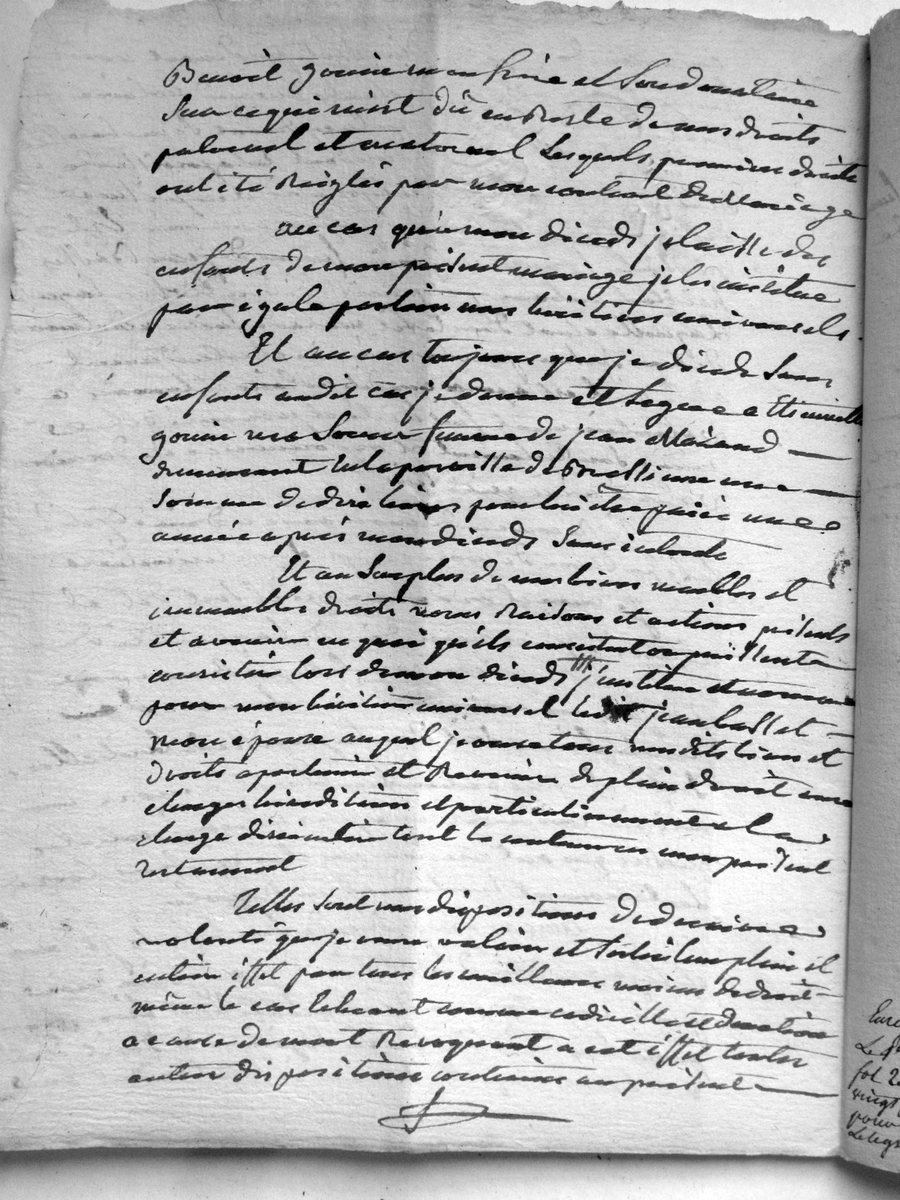 Benoit gouin mon frere et son domestique
sur ce qui m'est dû en reste de mes droits
paternel et maternel lesquels premiers droits
ont été Reiglés par mon contrat de Mariage
au cas qu'a mon dicéds je laisse des
enfants de mon présent mariage je les institue
par égale portion mes hèritiers universels
Et au cas toujours que je dicéde sans
enfants audit cas je donne et legue a
gouin ma soeur femme de jean
demeurant en la parville de une
somme de dix livres pour lui être païée une
année aprés mon dicéds sans interets
Et au surplus de mes biens meubles et
immeubles droits noms Raisons et actions présents
et avenir en quoi qu'ils consistent ou puissent
consister lors de mon dicéds j'institue et nomme
pour mon héritier universel ledit jean
mon époux auquel je veux tous mesdits biens et
droits apartenir et Revenir de plein droit aux
charges héréditaires et particulierement a la
charge d'exécuter tout le contenu en mon présent
testament
Telles sont mes dispositions de derniere
volonté que je veux valoir et sortir leur plein et
entier effet par tous les meilleurs moiens de droit
même le cas écheant comme codicille et donation
a cause de mort Revoquant a cet effet toutes
autres dispositions contraires au présent
fol
vingt
pour